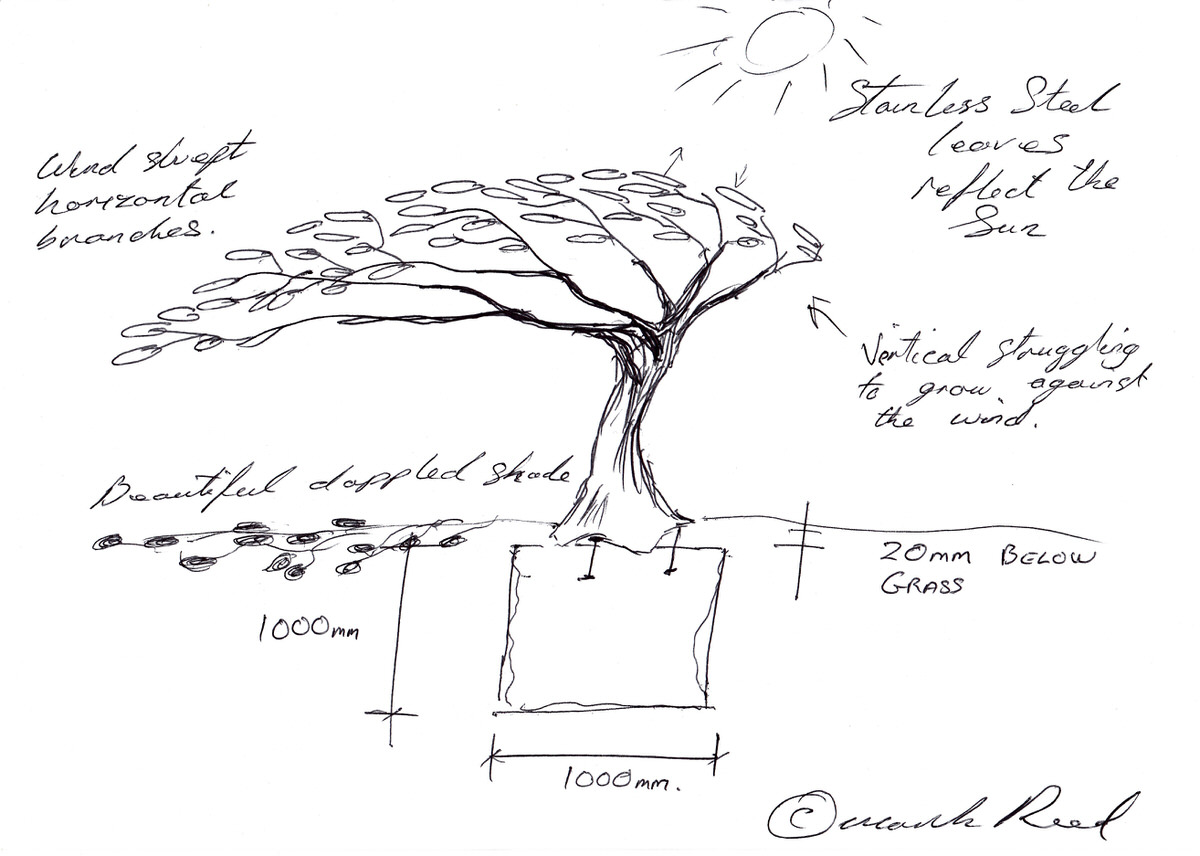 Wind swept
horizontal
branches.
Stainless Steel
leaves
reflect the
Sun
Vertical struggling
to grow against
the wind.
Beautiful dappled shade
20mm BELOW
GRASS
1000mm
1000mm.
© Mark Reed